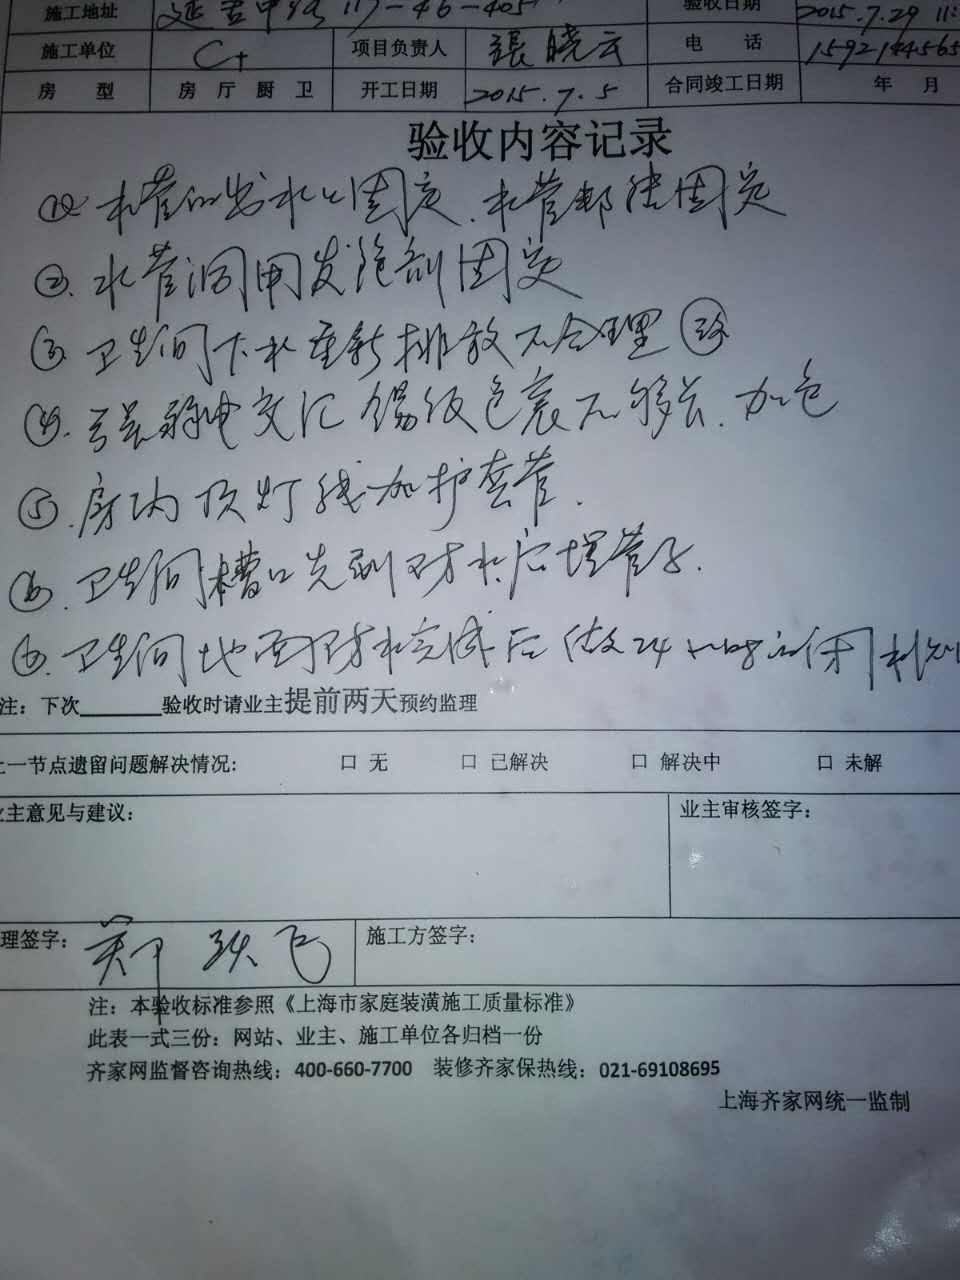 施工地址 延吉中路 117-46-405 验收日期 2015.7.29 11:
施工单位 C+ 项目负责人 張晓云 电 话 1592144565
房 型 房 厅 厨 卫 开工日期 2015.7.5 合同竣工日期 年 月
验收内容记录
①. 水管的出水口固定. 水管都固定
②. 水管洞用发泡剂固定
③. 卫生间下水重新排放不合理
④. 强弱电交汇锡纸包裹不够长. 加包
⑤. 房内顶灯线加护套管.
⑥. 卫生间槽口先刷防水后埋管子.
卫生间地面防水完成后做24
注：下次________验收时请业主提前两天预约监理
上一节点遗留问题解决情况: □ 无 □ 已解决 □ 解决中 □ 未解
业主意见与建议: 业主审核签字:
理签字: 郑跃飞 施工方签字:
注：本验收标准参照《上海市家庭装潢施工质量标准》
此表一式三份：网站、业主、施工单位各归档一份
齐家网监督咨询热线：400-660-7700 装修齐家保热线：021-69108695
上海齐家网统一监制